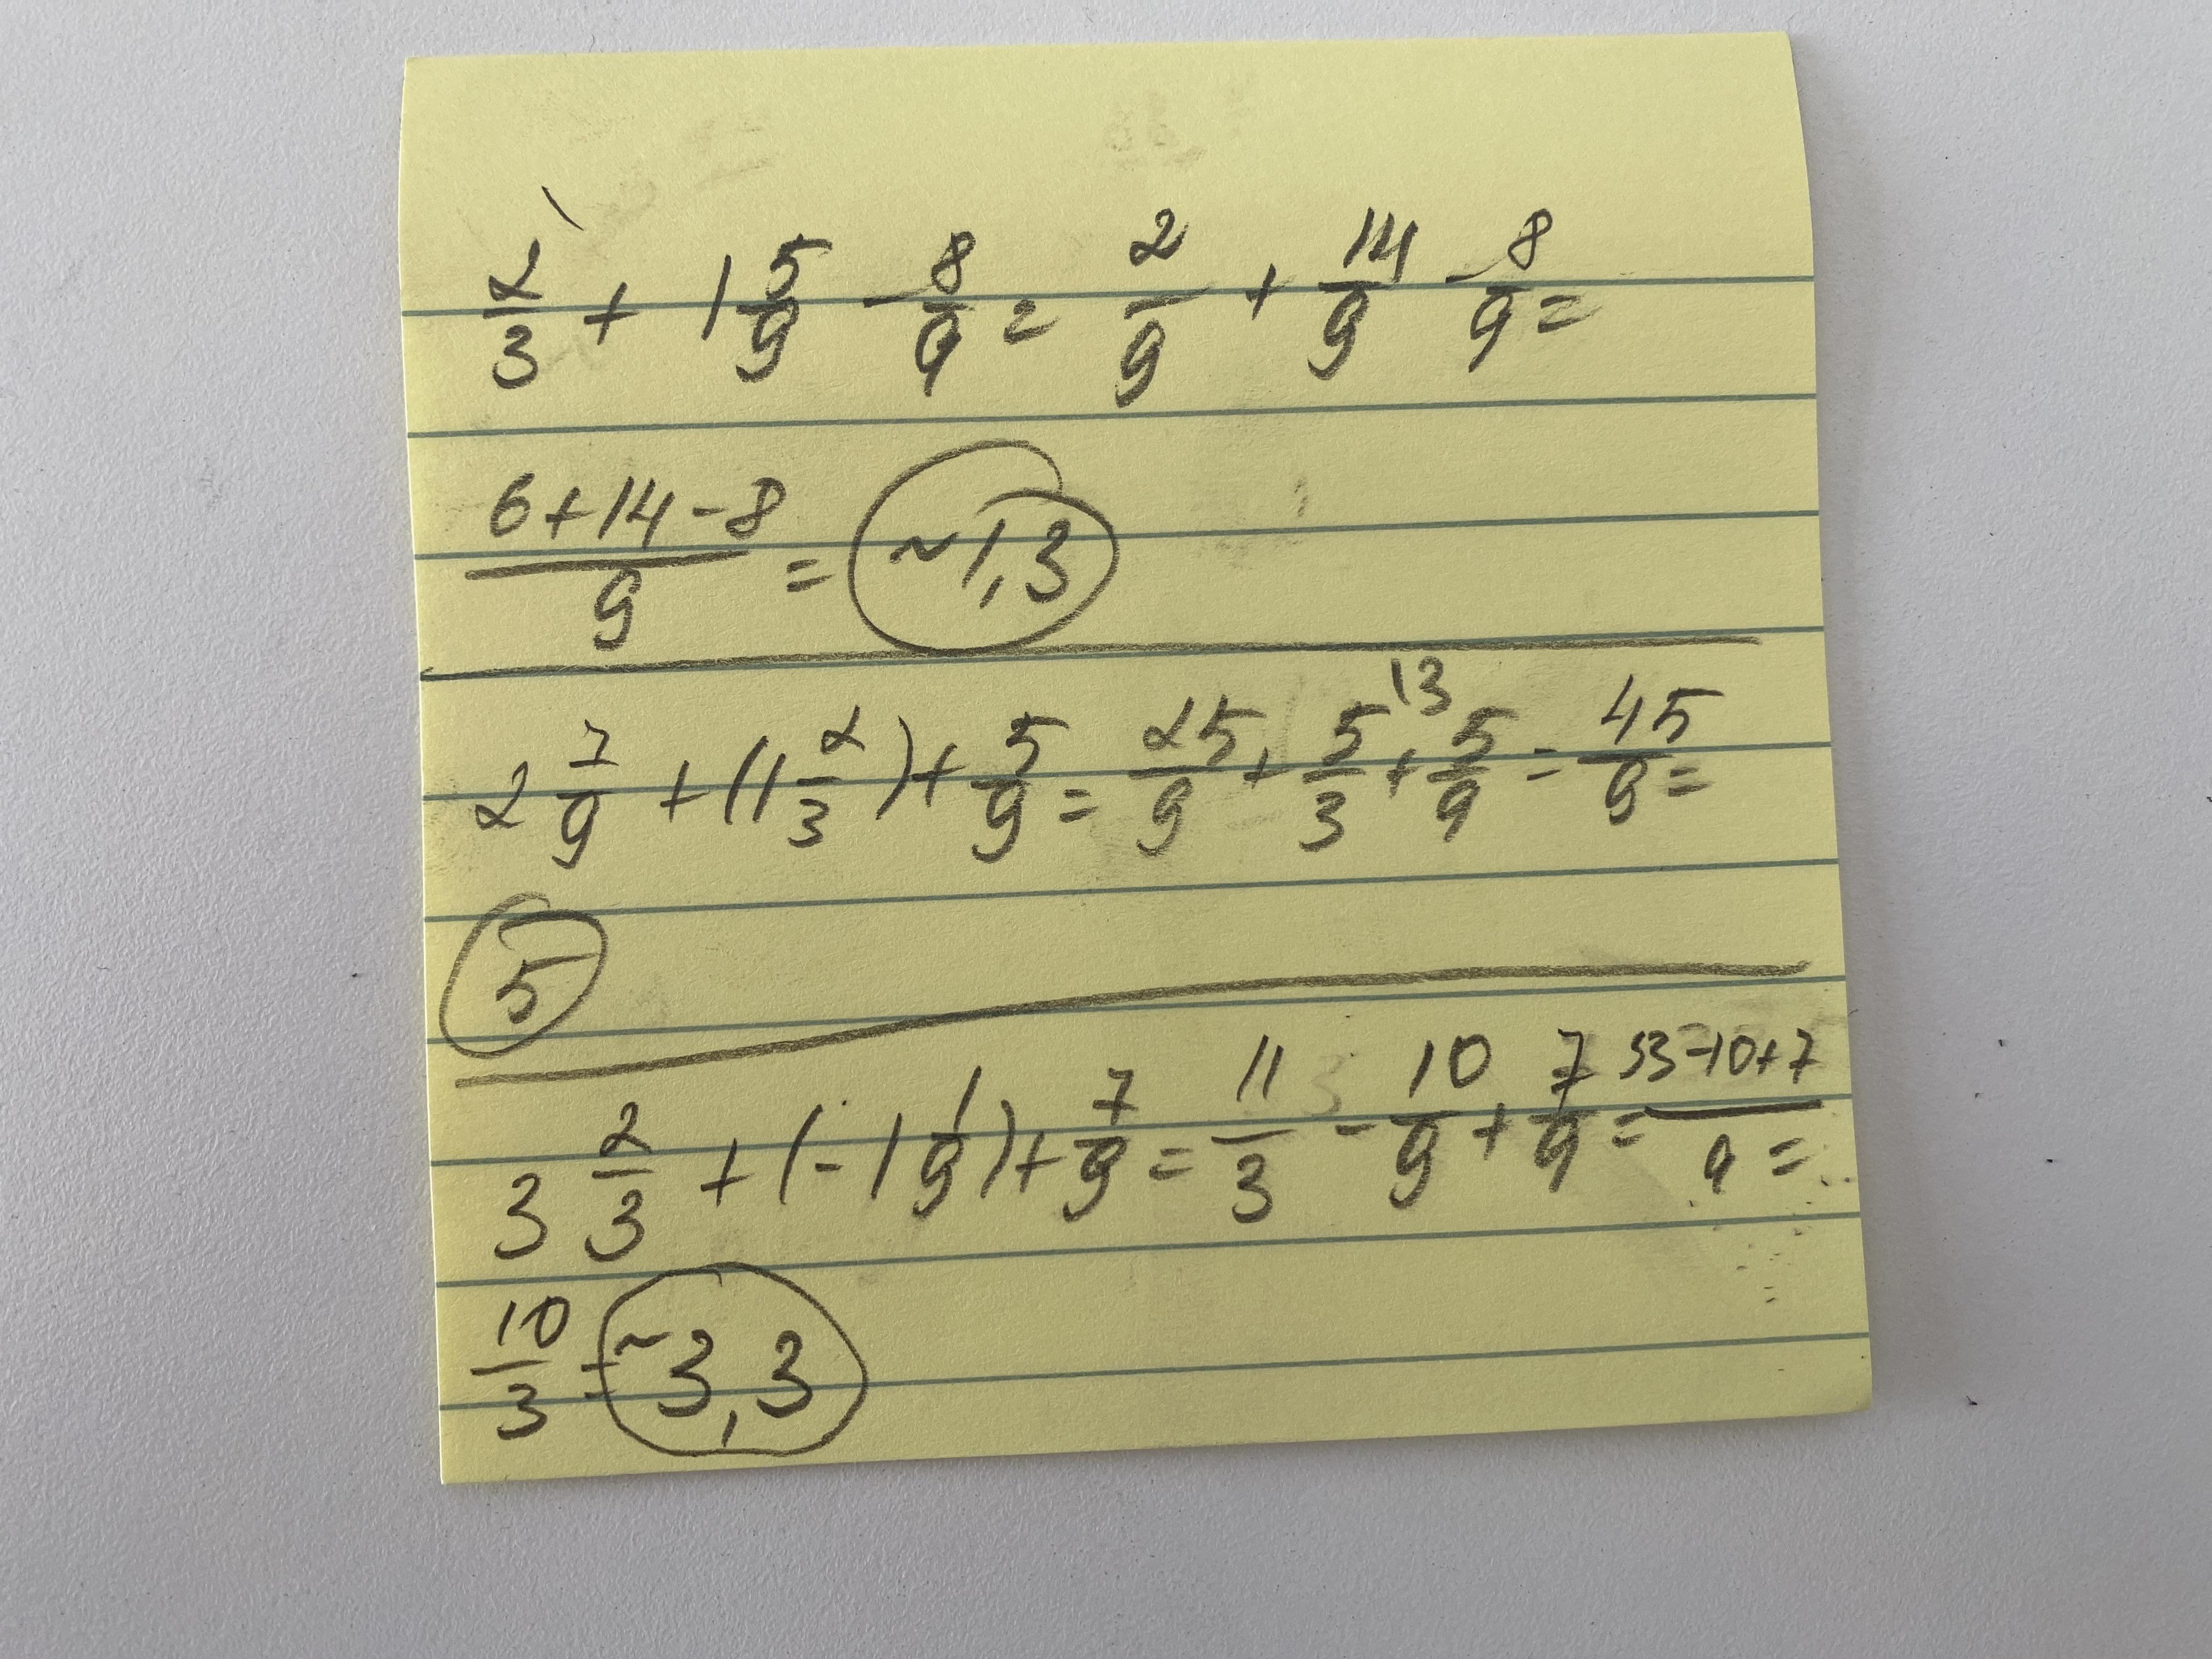 2/3 + 1 5/9 - 8/9 = 2/9 + 14/9 - 8/9 =
(6+14-8)/9 = ~1,3
2 7/9 + (1 2/3) + 5/9 = 25/9 + 5/3 \3 + 5/9 = 45/9 =
5
3 2/3 + (-1 1/9) + 7/9 = 11/3 - 10/9 + 7/9 = (33-10+7)/9 =
10/3 = ~3,3